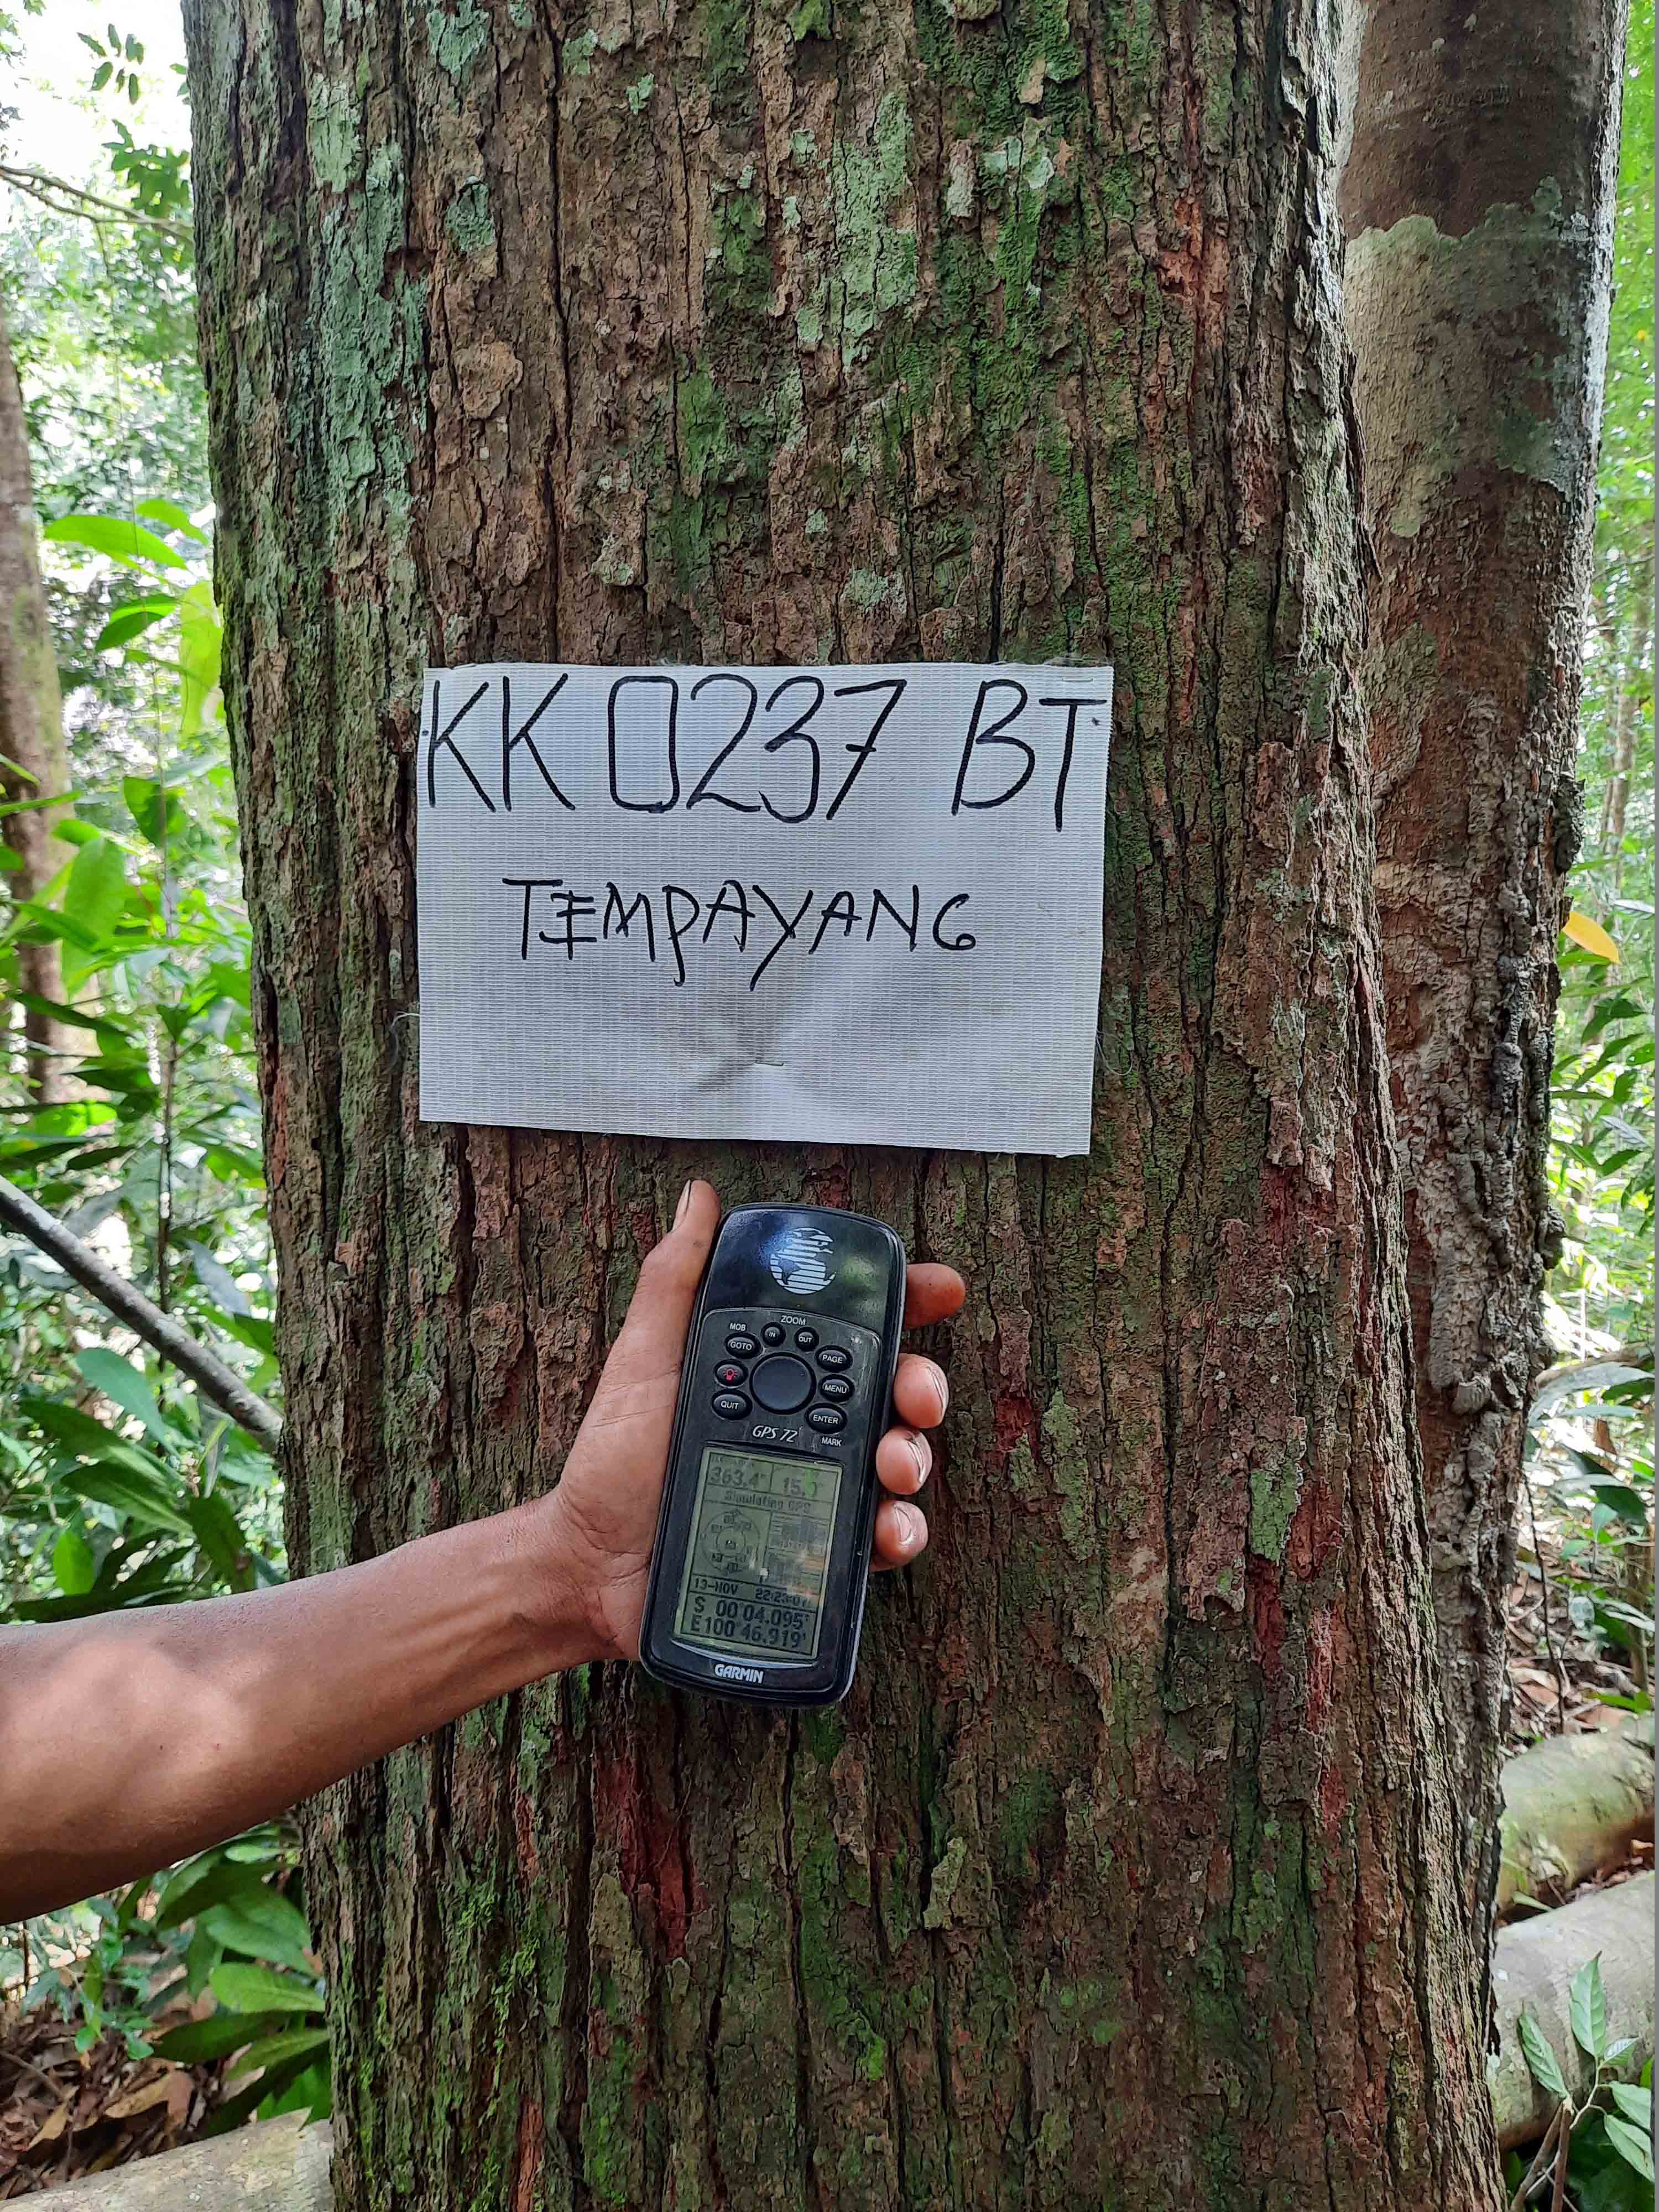 KK 0237 BT
TEMPAYANG
ZOOM
MOB
IN
OUT
GOTO
PAGE
MENU
QUIT
ENTER
GPS 72
MARK
363.4' 15.0'
Simulating GPS
13-NOV 22:23:07
S 00°04.095'
E100°46.919'
GARMIN